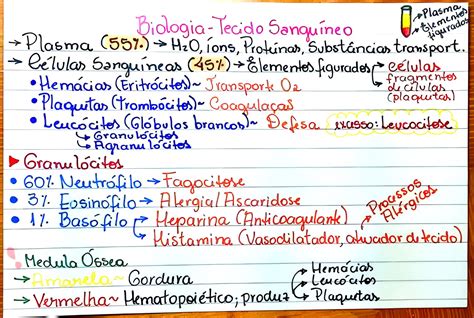 Biologia - Tecido Sanguíneo
Plasma
Elementos figurados
→ Plasma (55%) → H2O, íons, Proteínas, Substâncias transport.
→ Células Sanguíneas (45%) → Elementos figurados → células
→ fragmentos de células (plaquetas)
• Hemácias (Eritrócitos) ~ Transporte O2
• Plaquetas (Trombócitos) ~ Coagulação
• Leucócitos (Glóbulos brancos) ~ Defesa excesso: Leucocitose
→ Granulócitos
→ Agranulócitos
▶ Granulócitos
• 60% Neutrófilo → Fagocitose
• 3% Eosinófilo → Alergia/Ascaridiose
• 1% Basófilo → Heparina (Anticoagulante)
→ Histamina (Vasodilatador, atuador de tecido)
Processos Alérgicos
Medula Óssea
→ Amarela ~ Gordura
→ Vermelha ~ Hematopoiético; produz → Hemácias
→ Leucócitos
→ Plaquetas